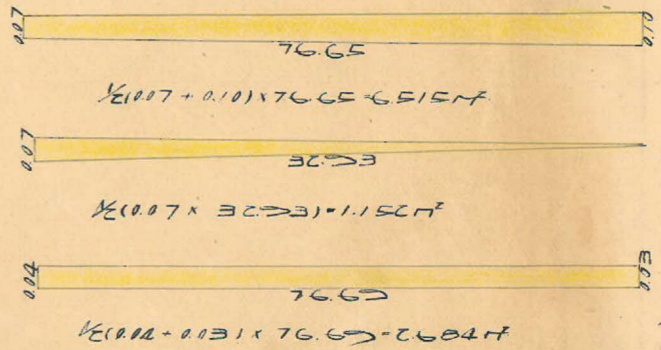 0.07 76.65 0.10
½(0.07 + 0.10) × 76.65 = 6.515 m²
0.07 32.93
½(0.07 × 32.93) = 1.152 m²
0.04 76.69 0.03
½(0.04 + 0.03) × 76.69 = 2.684 m²